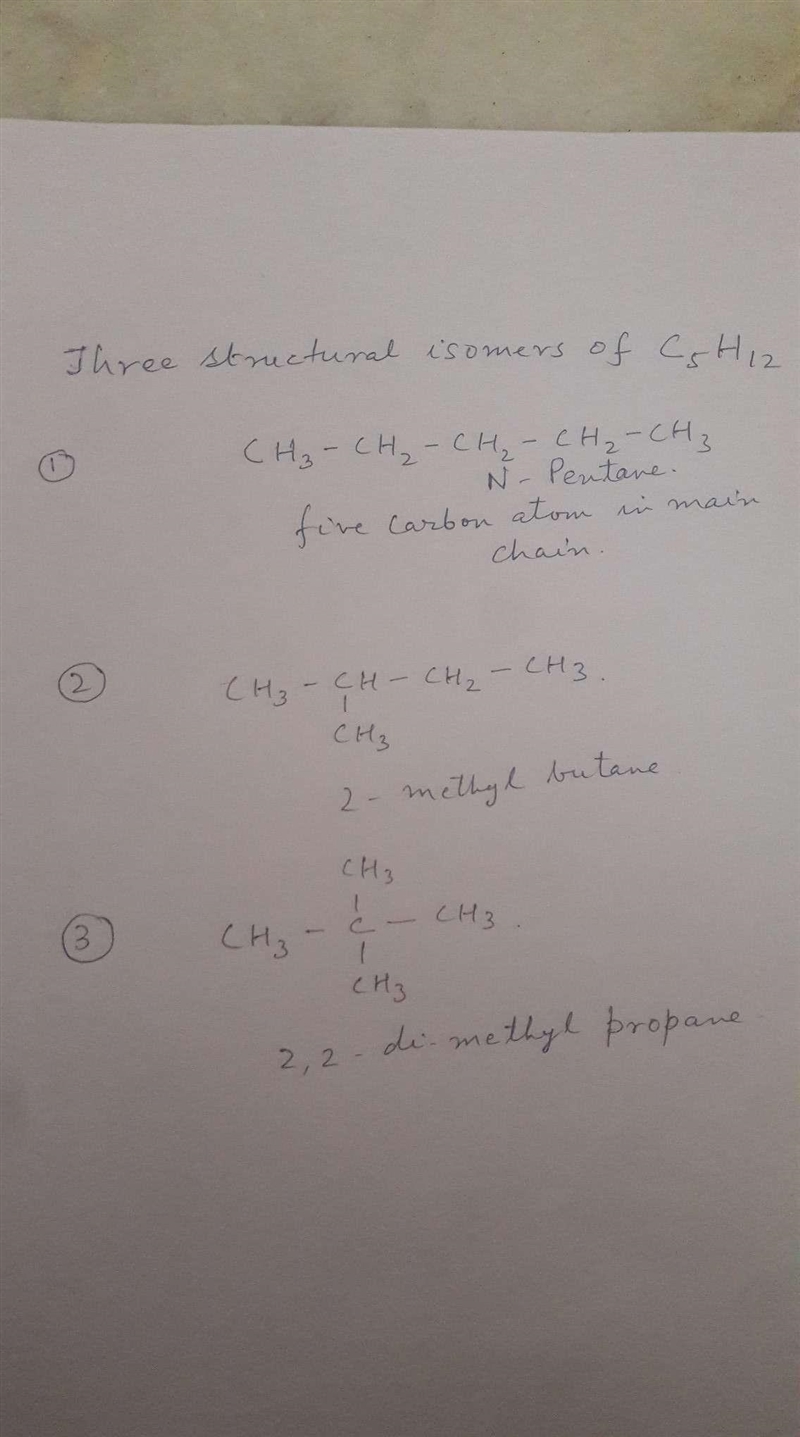 Three structural isomers of C5H12
① CH3 - CH2 - CH2 - CH2 - CH3
N - Pentane.
five carbon atom in main
chain.
② CH3 - CH - CH2 - CH3.
|
CH3
2 - methyl butane
CH3
|
③ CH3 - C - CH3.
|
CH3
2,2 - di-methyl propane